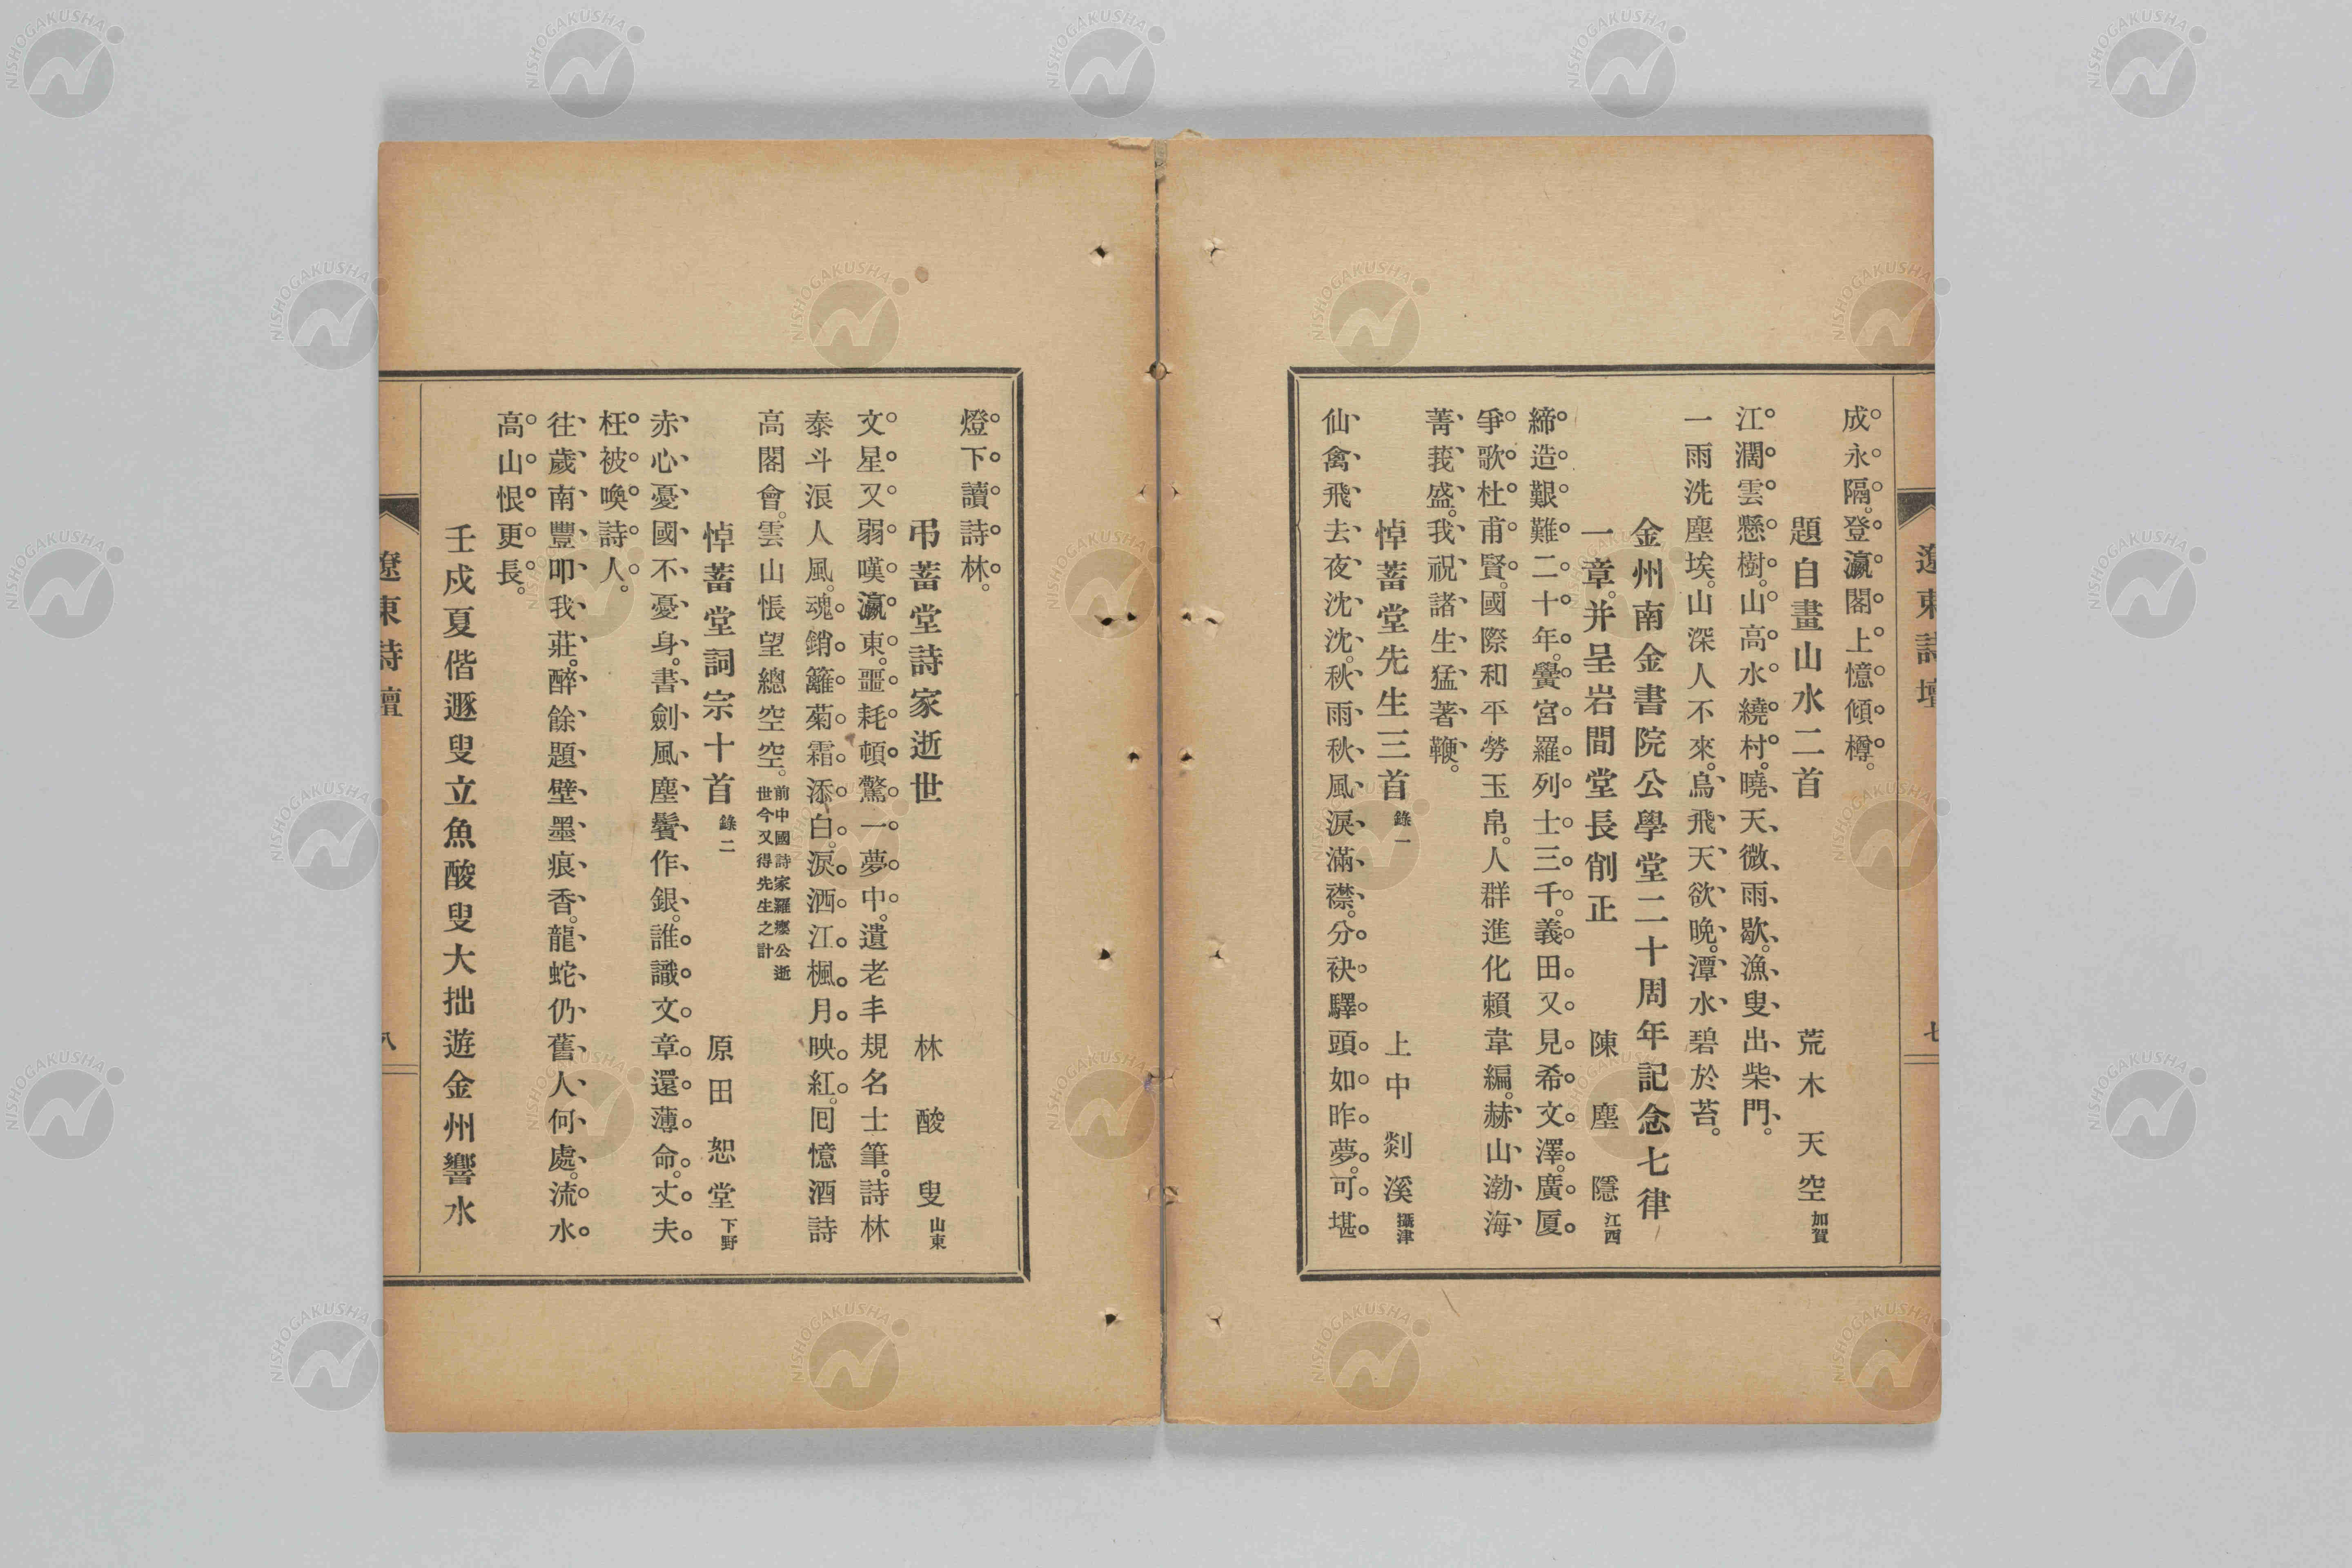 遼東詩壇
七
成永隔。登瀛閣上憶傾樽。
題自畫山水二首　荒木天空 加賀
江濶雲懸樹。山高水繞村。曉天微雨歇。漁叟出柴門。
一雨洗塵埃。山深人不來。鳥飛天欲晩。潭水碧於苔。
金州南金書院公學堂二十周年記念七律
一章。并呈岩間堂長削正　陳塵隱 江西
締造艱難二十年。黌宮羅列士三千。義田又見希文澤。廣厦
爭歌杜甫賢。國際和平勞玉帛。人群進化賴韋編。赫山渤海
菁莪盛。我祝諸生猛著鞭。
悼蓄堂先生三首 錄一　上中剡溪 攝津
仙禽飛去夜沈沈。秋雨秋風淚滿襟。分袂驛頭如昨夢。可堪
燈下讀詩林。
弔蓄堂詩家逝世　林酸叟 山東
文星又弱嘆瀛東。噩耗頓驚一夢中。遺老丰規名士筆。詩林
泰斗浪人風。魂銷籬菊霜添白。淚洒江楓月映紅。囘憶酒詩
高閣會。雲山悵望總空空。前中國詩家羅癭公逝
世今又得先生之訃
悼蓄堂詞宗十首 錄二　原田恕堂 下野
赤心憂國不憂身。書劍風塵鬢作銀。誰識文章還薄命。丈夫
枉被喚詩人。
往歲南豐叩我莊。醉餘題壁墨痕香。龍蛇仍舊人何處。流水
高山恨更長。
壬戌夏偕遯叟立魚酸叟大拙遊金州響水
遼東詩壇
八
NISHOGAKUSHA